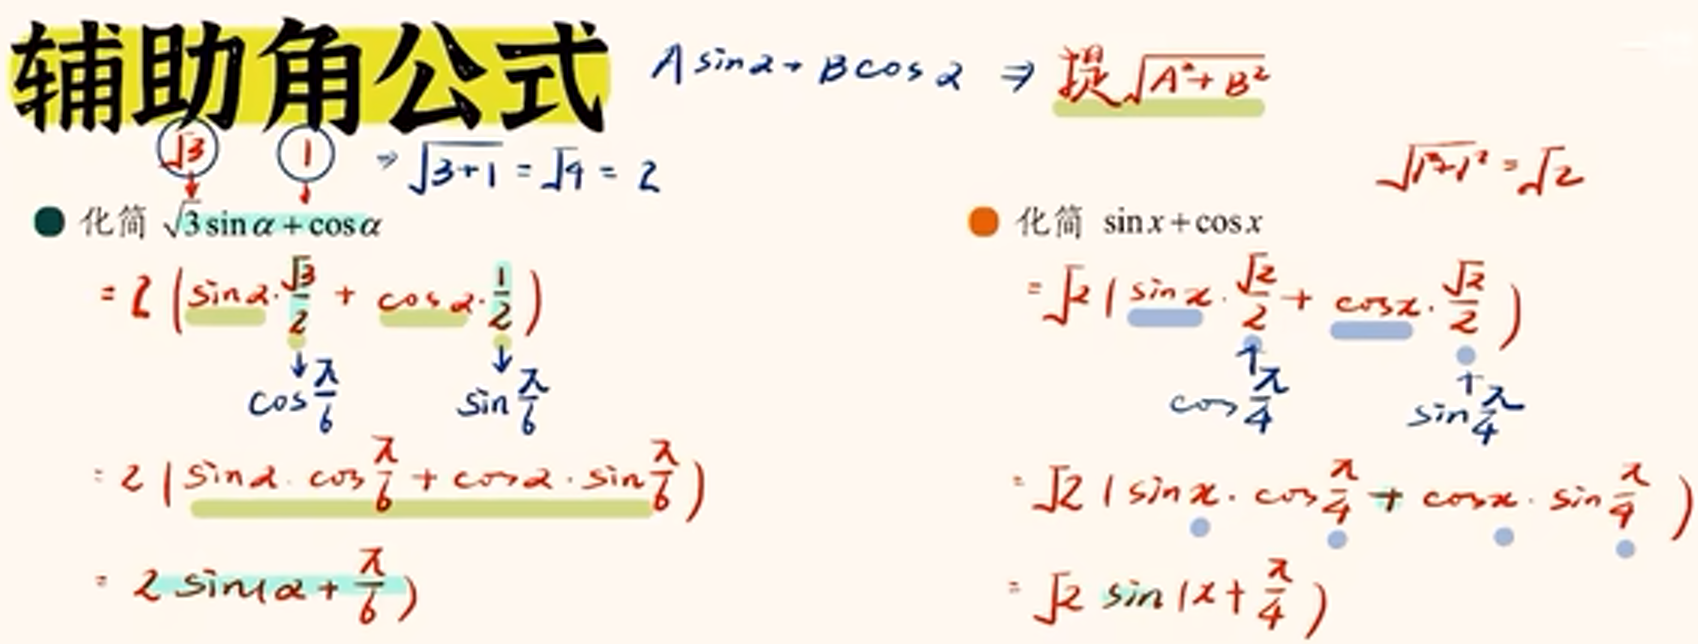 辅助角公式 A sinα + B cosα ⇒ 提√(A²+B²)
√3 1 ⇒ √(3+1) = √4 = 2
√(1²+1²) = √2
化简 √3 sin α + cos α
= 2 (sinα·√3/2 + cosα·1/2)
↓ ↓
cos π/6 sin π/6
= 2 (sinα·cos π/6 + cosα·sin π/6)
= 2 sin(α + π/6)
化简 sin x + cos x
= √2 (sinx·√2/2 + cosx·√2/2)
↑ ↑
cos π/4 sin π/4
= √2 (sinx·cos π/4 + cosx·sin π/4)
= √2 sin(x + π/4)